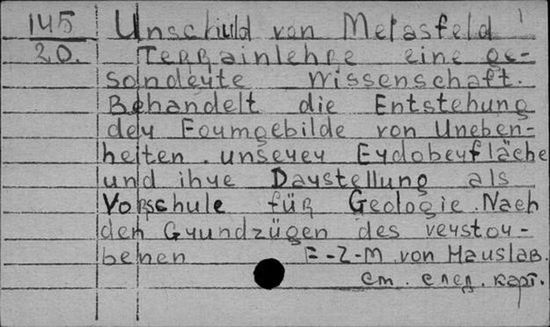 145
20.
Unschuld von Melasfeld
Terrainlehre eine ge-
sondeute Wissenschaft.
Behandelt die Entstehung
der Foumgebilde von Uneben-
heiten unseuer Eudobeufläche
und ihue Daustellung als
Vorschule für Geologie. Nach
den Guundzügen des veustou-
benen F.-Z-M. von Hauslab.
см. след. карт.